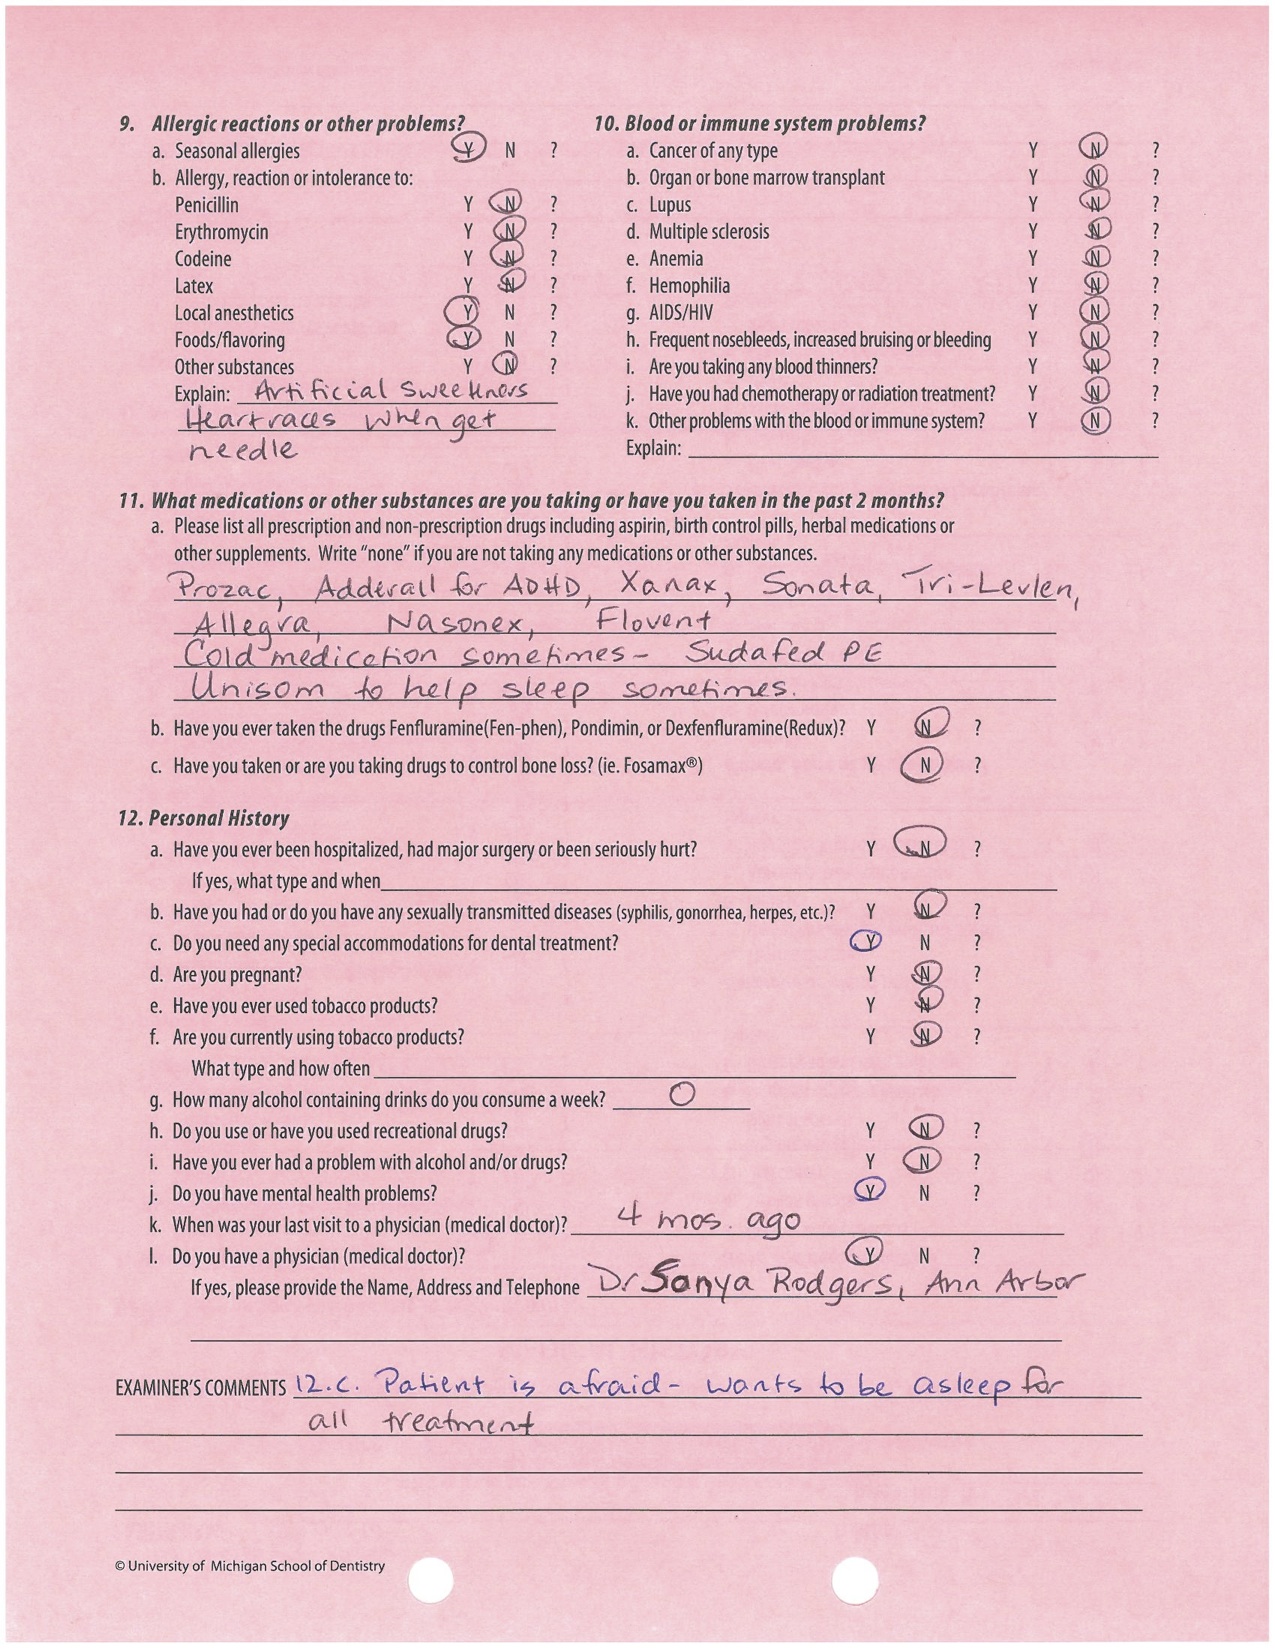 9. Allergic reactions or other problems?
a. Seasonal allergies Y N ?
b. Allergy, reaction or intolerance to:
Penicillin Y N ?
Erythromycin Y N ?
Codeine Y N ?
Latex Y N ?
Local anesthetics Y N ?
Foods/flavoring Y N ?
Other substances Y N ?
Explain: Artificial Sweetners
Heart races when get
needle
10. Blood or immune system problems?
a. Cancer of any type Y N ?
b. Organ or bone marrow transplant Y N ?
c. Lupus Y N ?
d. Multiple sclerosis Y N ?
e. Anemia Y N ?
f. Hemophilia Y N ?
g. AIDS/HIV Y N ?
h. Frequent nosebleeds, increased bruising or bleeding Y N ?
i. Are you taking any blood thinners? Y N ?
j. Have you had chemotherapy or radiation treatment? Y N ?
k. Other problems with the blood or immune system? Y N ?
Explain:
11. What medications or other substances are you taking or have you taken in the past 2 months?
a. Please list all prescription and non-prescription drugs including aspirin, birth control pills, herbal medications or
other supplements. Write “none” if you are not taking any medications or other substances.
Prozac, Adderall for ADHD, Xanax, Sonata, Tri-Levlen,
Allegra, Nasonex, Flovent
Cold medication sometimes - Sudafed PE
Unisom to help sleep sometimes.
b. Have you ever taken the drugs Fenfluramine(Fen-phen), Pondimin, or Dexfenfluramine(Redux)? Y N ?
c. Have you taken or are you taking drugs to control bone loss? (ie. Fosamax®) Y N ?
12. Personal History
a. Have you ever been hospitalized, had major surgery or been seriously hurt? Y N ?
If yes, what type and when
b. Have you had or do you have any sexually transmitted diseases (syphilis, gonorrhea, herpes, etc.)? Y N ?
c. Do you need any special accommodations for dental treatment? Y N ?
d. Are you pregnant? Y N ?
e. Have you ever used tobacco products? Y N ?
f. Are you currently using tobacco products? Y N ?
What type and how often
g. How many alcohol containing drinks do you consume a week? 0
h. Do you use or have you used recreational drugs? Y N ?
i. Have you ever had a problem with alcohol and/or drugs? Y N ?
j. Do you have mental health problems? Y N ?
k. When was your last visit to a physician (medical doctor)? 4 mos. ago
l. Do you have a physician (medical doctor)? Y N ?
If yes, please provide the Name, Address and Telephone Dr Sonya Rodgers, Ann Arbor
EXAMINER'S COMMENTS 12.c. Patient is afraid - wants to be asleep for
all treatment
© University of Michigan School of Dentistry